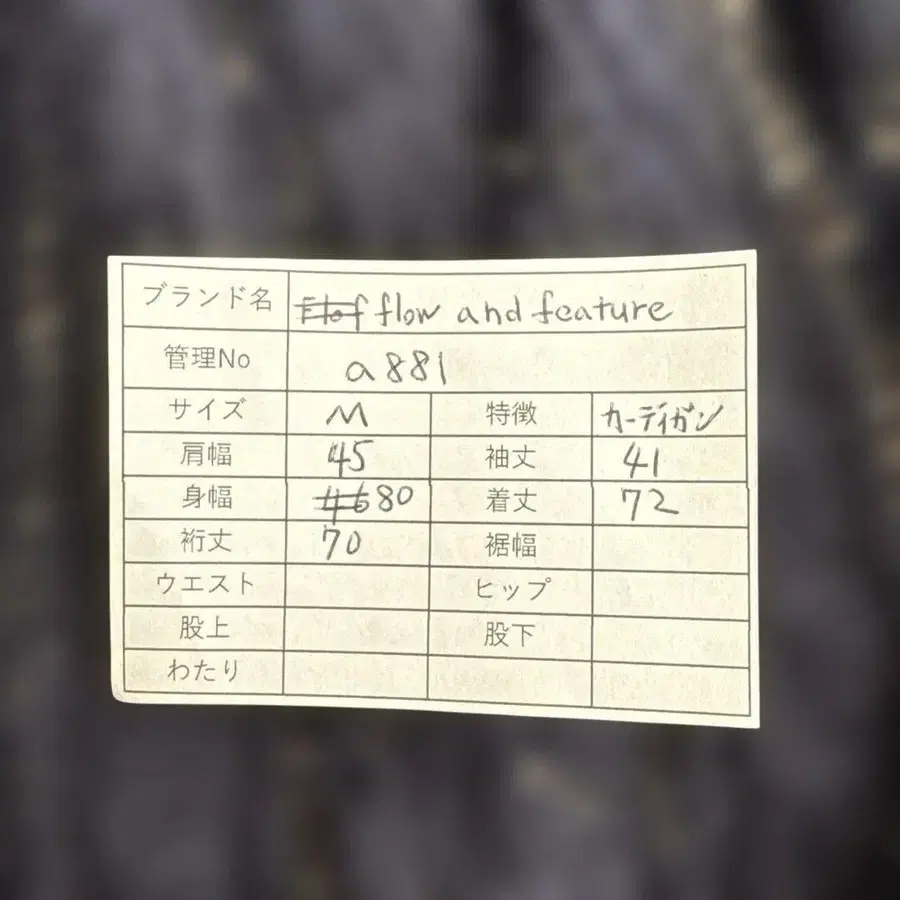 ブランド名 flow and feature
管理No a881
サイズ M 特徴 カーディガン
肩幅 45 袖丈 41
身幅 80 着丈 72
裄丈 70 裾幅
ウエスト ヒップ
股上 股下
わたり